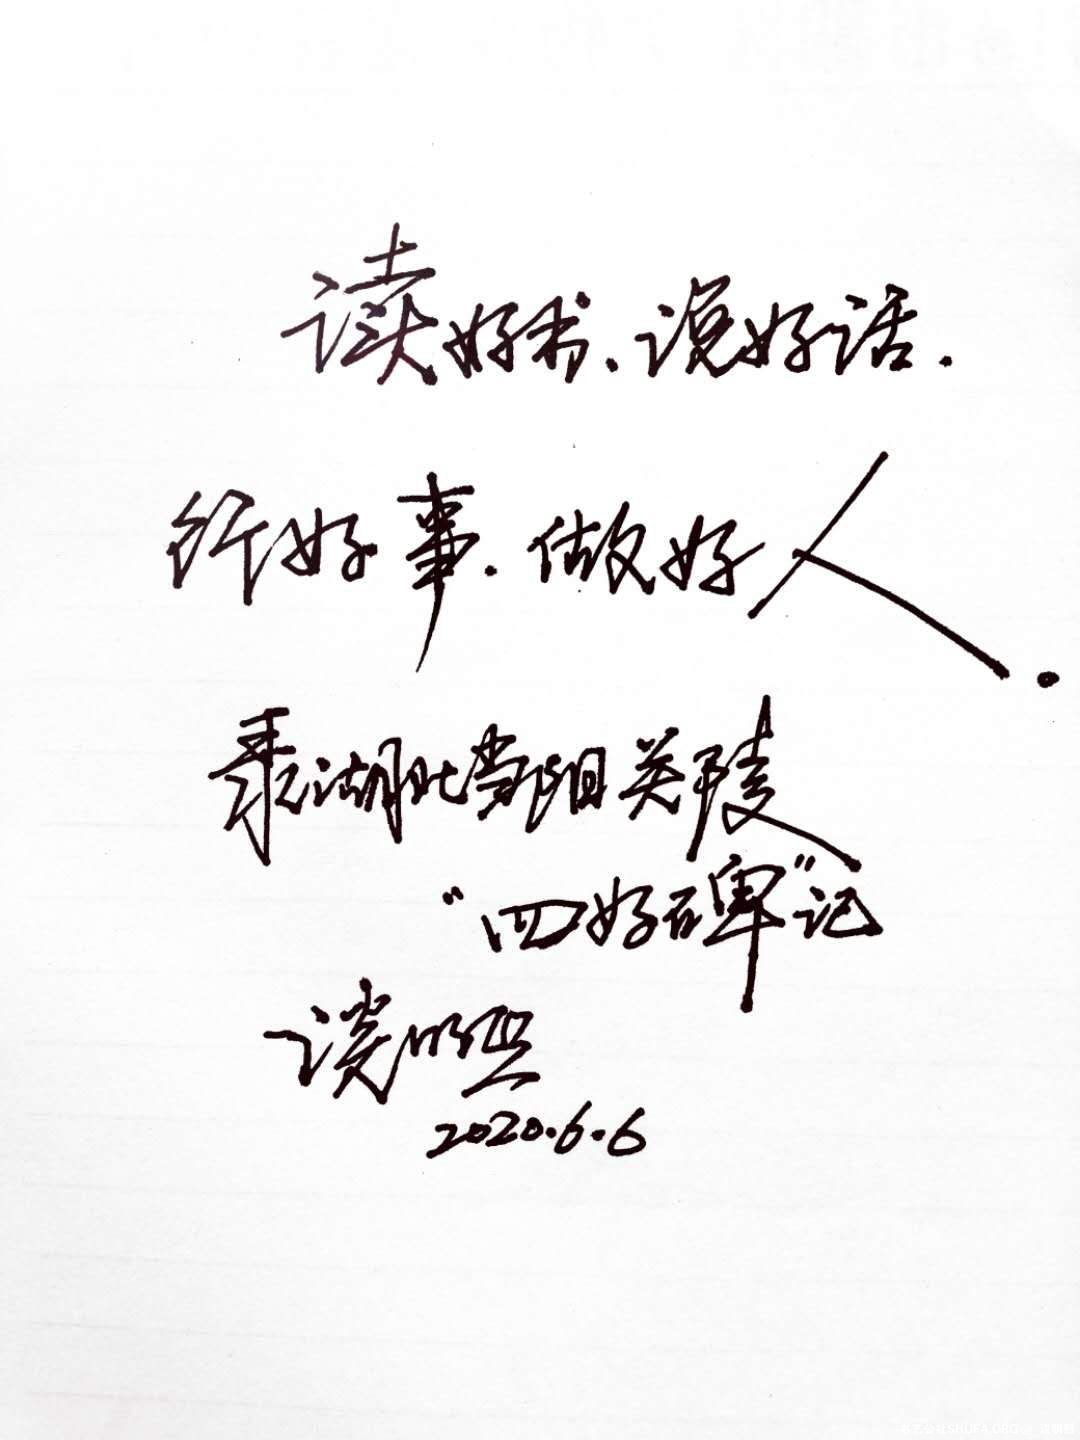 读好书、说好话.
行好事.做好人.
录湖北当阳关陵
“四好碑”记
谈明
2020.6.6